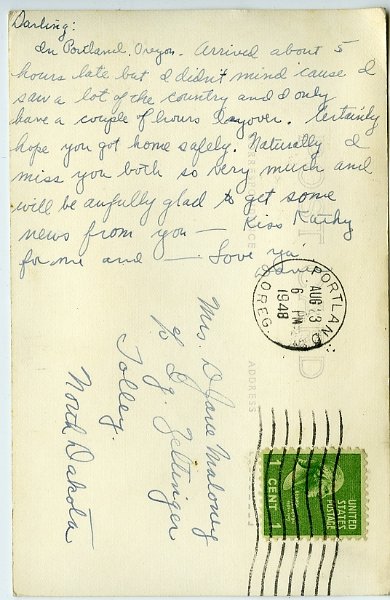 Darling:
In Portland, Oregon. Arrived about 5
hours late but I didn't mind 'cause I
saw a lot of the country and I only
have a couple of hours layover. Certainly
hope you got home safely. Naturally I
miss you both so very much and
will be awfully glad to get some
news from you — Kiss Kathy
for me and — Love ya'
PORTLAND
AUG 23
6 PM
1948
OREG.
ADDRESS
Mrs. Dave Maloney
Tolley.
North Dakota
UNITED
STATES
POSTAGE
1 CENT 1